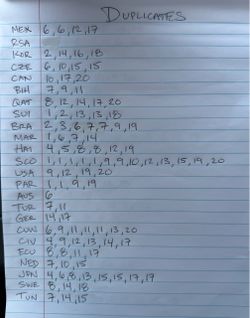 DUPLICATES
MEX 6, 6, 12, 17
RSA
KOR 2, 14, 16, 18
CZE 6, 10, 15, 15
CAN 10, 17, 20
BIH 7, 9, 11
QAT 8, 12, 14, 17, 20
SUI 1, 2, 13, 13, 18
BRA 2, 3, 6, 7, 7, 9, 19
MAR 1, 6, 7, 14
HAI 4, 5, 8, 8, 12, 19
SCO 1, 1, 1, 1, 1, 9, 9, 10, 12, 13, 15, 19, 20
USA 9, 12, 19, 20
PAR 1, 1, 9, 19
AUS 6
TUR 7, 11
GER 14, 17
CUW 6, 9, 11, 11, 11, 13, 20
CIV 4, 9, 12, 13, 14, 17
ECU 8, 8, 11, 17
NED 7, 10, 15
JPN 4, 6, 8, 13, 15, 15, 17, 19
SWE 8, 14, 18
TUN 7, 14, 15